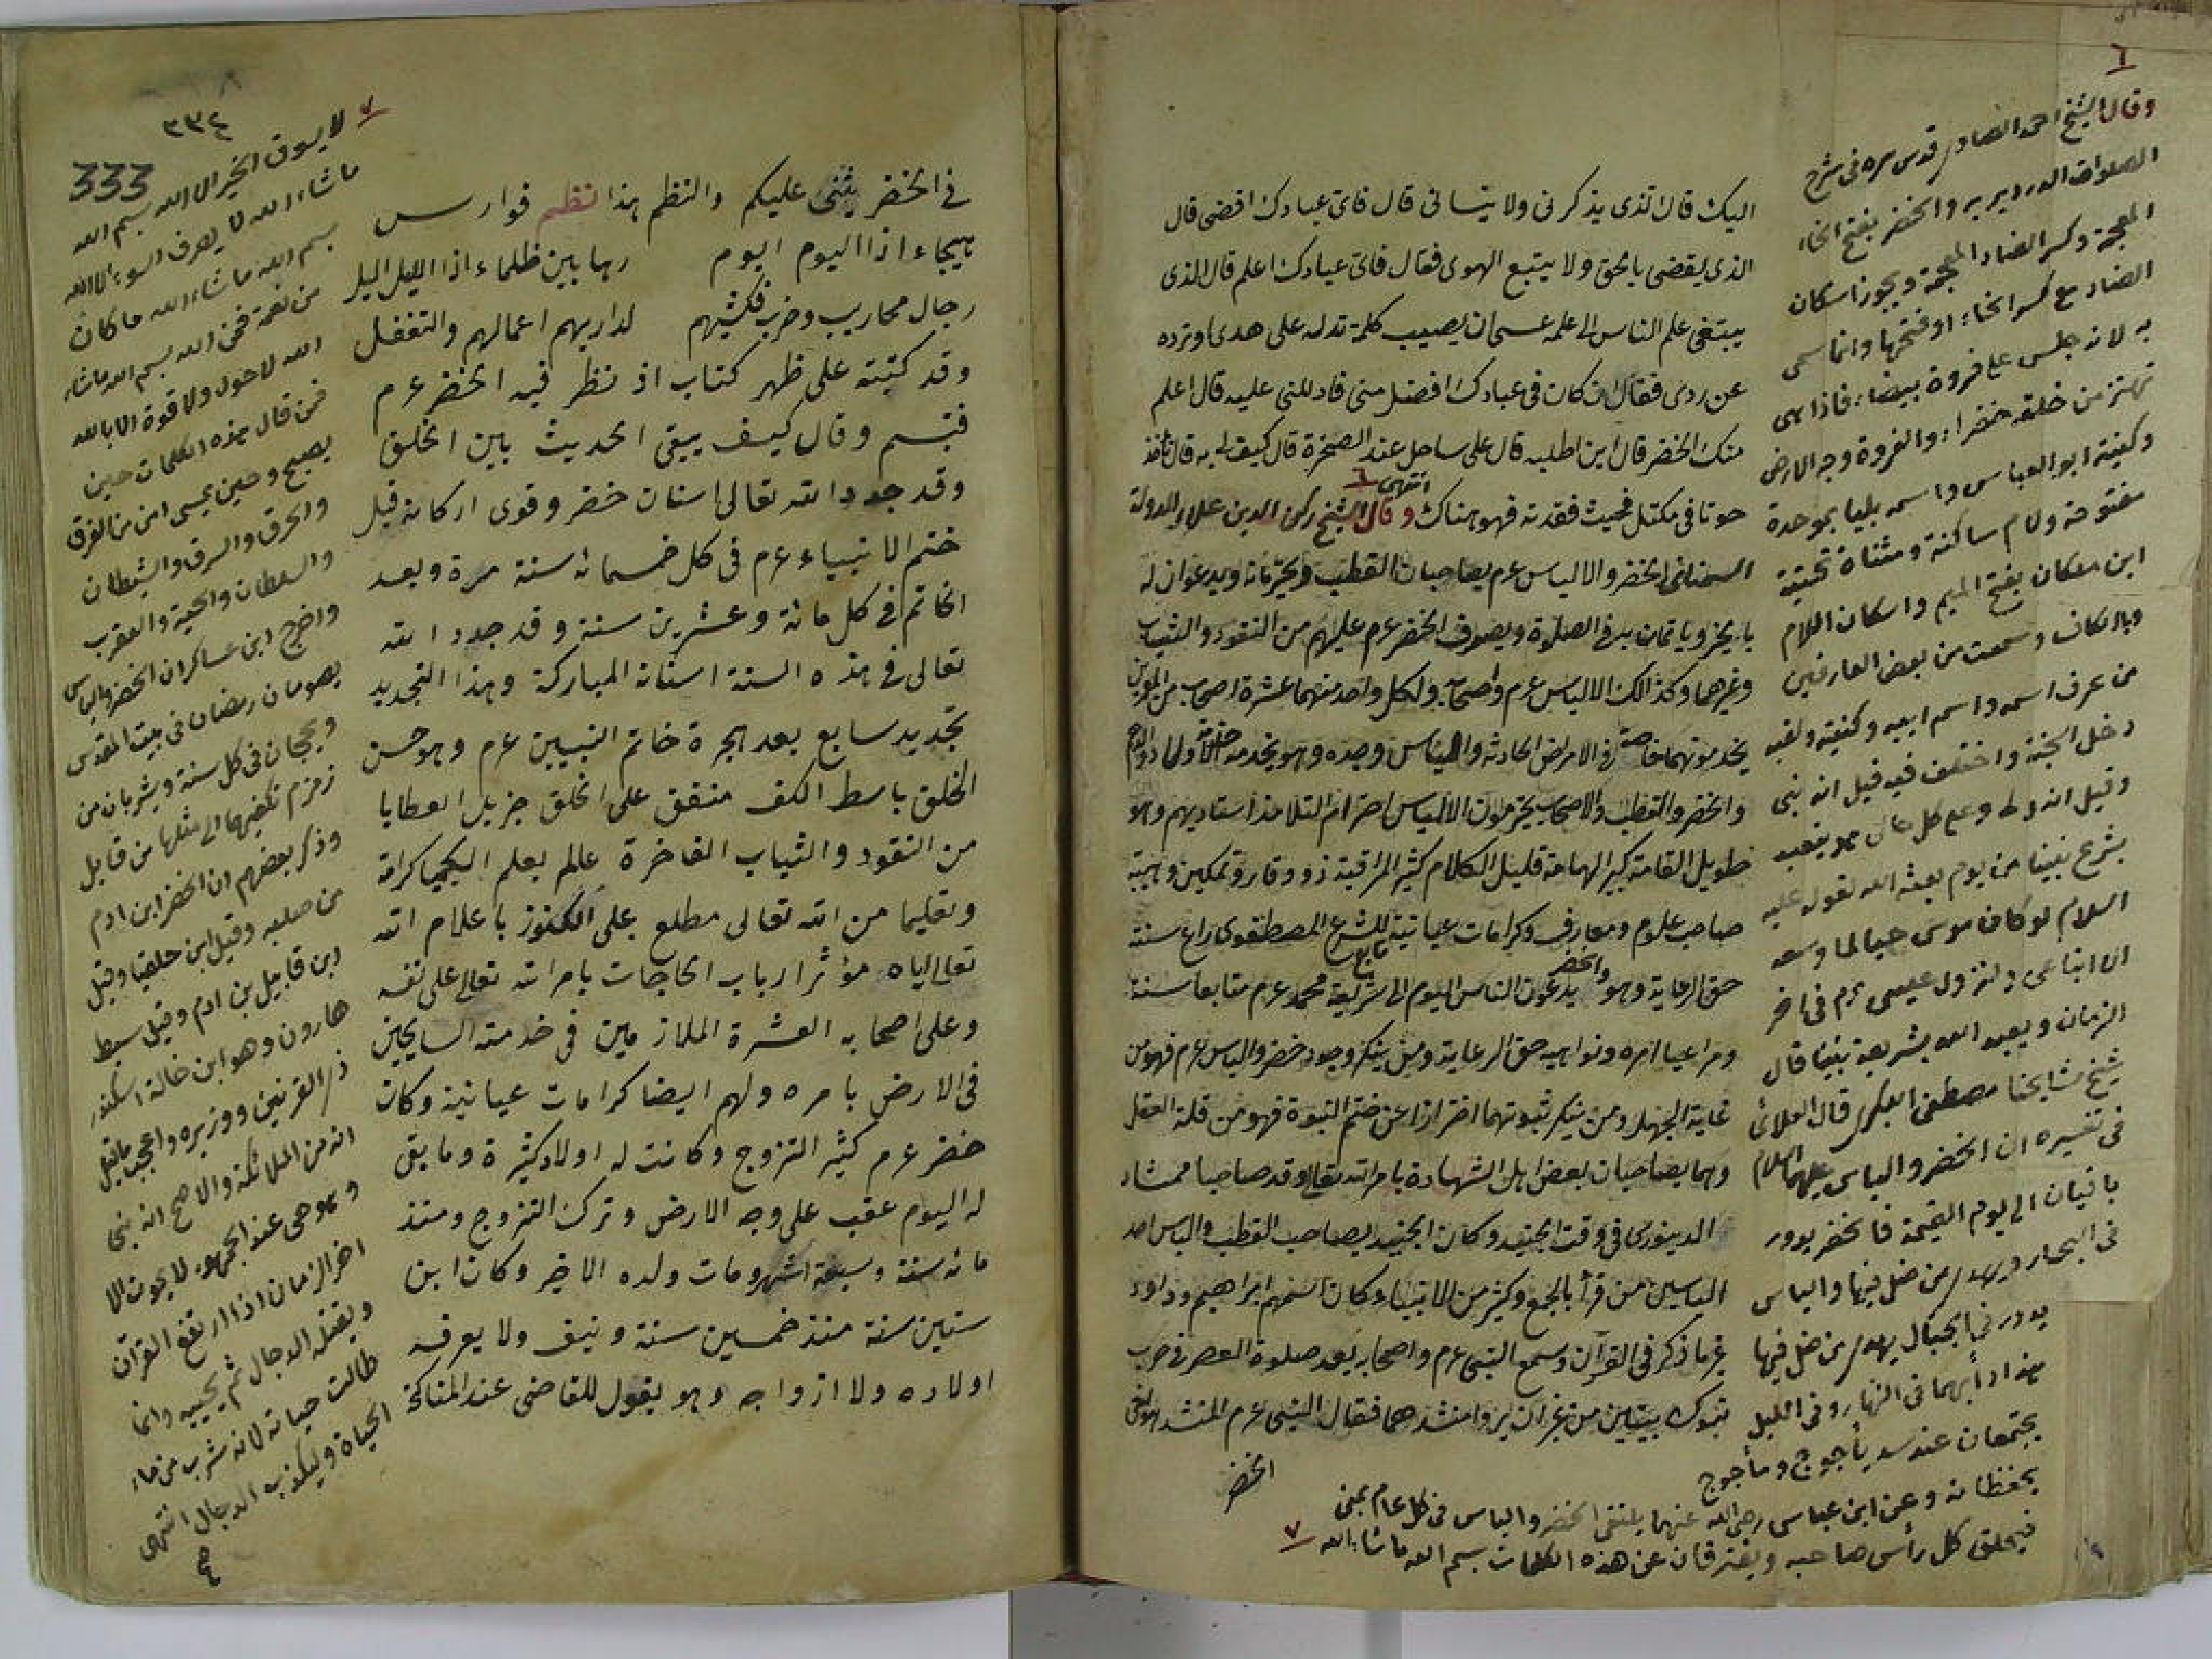 اليك قال الذى يذكرنى ولا ينسانى قال فاى عبادك اقضى قال
الذى يقضى بالحق ولا يتبع الهوى فقال فاى عبادك اعلم قال الذى
يبتغى علم الناس الى علمه عسى ان يصيب كلمة تدله على هدى او ترده
عن ردى فقال ان كان فى عبادك افضل منى فادللنى عليه قال اعلم
منك الخضر قال اين اطلبه قال على ساحل عند الصخرة قال كيف لى به قال تاخذ
حوتا فى مكتل فحيث فقدته فهو هناك انتهى ٦ وقال الشيخ ركن الدين علاء الدولة
السمنانى الخضر والالياس عرم يصاحبان القطب ويحترمانه ويدعوان له
بالخير وياتمان به فى الصلوة ويصرف الخضر عرم عليهم من النقود والثياب
وغيرهما وكذالك الالياس عرم واصحابه ولكل واحد منهما عشرة اصحاب من
يخدمونهما خاصة فى الامراض الحادثة والالياس وحده وهو يخدمه
والخضر والقطب والاصحاب يحترمون الالياس احترام التلامذ استاديهم وهو
طويل القامة كبير الهامة قليل الكلام كثير المراقبة ذو وقار وتمكين وهيبة
صاحب علوم ومعارف وكرامات عيانية تابع للشرع المصطفوى راع سنة
حق الرعاية وهو والخضر يدعون الناس اليوم الى شريعة محمد عرم متابعا سنته
ومراعيا امره ونواهيه حق الرعاية ومن ينكر وجود خضر والياس عرم فهو من
غاية الجهل ومن ينكر ثبوتهما احترازا عن ختم النبوة فهو من قلة العقل
وهما يصاحبان بعض اهل الشهادة بامر الله تعالى وقد صاحبا ممشاد
الدينورى فى وقت الجنيد وكان الجنيد يصاحب القطب والياس احد
الياسين من قرأ بالجمع وكثير من الانبياء وكان اسمهم ابراهيم وداود
غير ما ذكر فى القرآن وسمع النبى عرم واصحابه بعد صلوة العصر فى حرب
تبوك بيتين من غير ان يروا منشدهما فقال النبى عرم المنشد هو اخى
الخضر
٦
وقال الشيخ احمد الصاوى قدس سره فى شرح
الصلوات الدرديريه والخضر بفتح الخاء
المعجمة وكسر الضاد المعجمة ويجوز اسكان
الضاد مع كسر الخاء او فتحها وانما سمى
به لانه جلس على فروة بيضاء فاذا هى
تهتز من خلفه خضراء والفروة وجه الارض
وكنيته ابو العباس واسمه بليا بموحدة
مفتوحة ولام ساكنة ومثناة تحتية
ابن ملكان بفتح الميم واسكان اللام
وبالكاف وسمعت من بعض العارفين
من عرف اسمه واسم ابيه وكنيته ولقبه
دخل الجنة واختلف فيه قيل انه نبى
وقيل انه ولى وعلى كل حال هو يتعبد
بشرع نبينا من يوم بعثه الله لقوله عليه
السلام لو كان موسى حيا لما وسعه
الا اتباعى ولنزول عيسى عرم فى اخر
الزمان ويعبد الله بشريعة نبينا قال
شيخ مشايخنا مصطفى البكرى قال العلائى
فى تفسيره ان الخضر والياس عليهما السلام
باقيان الى يوم القيمة فالخضر يدور
فى البحار يهدى من ضل فيها والياس
يدور فى الجبال يهدى من ضل فيها
هذا دأبهما فى النهار وفى الليل
يجتمعان عند سد يأجوج ومأجوج
يحفظانه وعن ابن عباس رضى الله عنهما يلتقى الخضر والياس فى كل عام بمنى
فيحلق كل رأس صاحبه ويفترقان عن هذه الكلمات بسم الله ماشاء الله ٧
٣٣٤
333
فى الخضر يثنى عليكم والنظم هذا نظم فوارس
هيجاء اذا اليوم اليوم رهابين ظلماء اذا الليل اليل
رجال محاريب وحرب فكثيهم لداريهم اعمالهم والتغفل
وقد كتبته على ظهر كتاب اذ نظر فيه الخضر عرم
فتبسم وقال كيف يبقى الحديث بين الخلق
وقد جدد الله تعالى اسنان خضر وقوى اركانه قبل
ختم الانبياء عرم فى كل خمسمائة سنة مرة وبعد
الخاتم فى كل مائة وعشرين سنة وقد جدد الله
تعالى فى هذه السنة اسنانه المباركة وهذا التجديد
تجديد سابع بعد هجرة خاتم النبيين عرم وهو حسن
الخلق باسط الكف منفق على الخلق جزيل العطايا
من النقود والثياب الفاخرة عالم بعلم الكيميا كرامة
وتعليما من الله تعالى مطلع على الكنوز باعلام الله
تعالى اياه مؤثر ارباب الحاجات بامر الله تعالى على نفسه
وعلى اصحابه العشرة الملازمين فى خدمته السايحين
فى الارض بامره ولهم ايضا كرامات عيانية وكان
خضر عرم كثير التزوج وكانت له اولاد كثيرة وما بقى
له اليوم عقب على وجه الارض وترك التزوج ومنذ
مائة سنة وسبعة اشهر ومات ولده الاخير وكان ابن
ستين سنة منذ خمسين سنة ونيف ولا يعرفه
اولاده ولا ازواجه وهو يقول للقاضى عند المناكحة
٧ لا يسوق الخير الا الله بسم الله
ماشاء الله لا يصرف السوء الا الله
بسم الله ماشاء الله ما كان
من نعمة فمن الله بسم الله ماشاء
الله لا حول ولا قوة الا بالله
فمن قال هذه الكلمات حين
يصبح وحين يمسى امن من الغرق
والحرق والسرق والشيطان
والسلطان والحية والعقرب
واخرج ابن عساكر ان الخضر والياس
يصومان رمضان فى بيت المقدس
ويحجان فى كل سنة ويشربان من
زمزم تكفيهما الى مثلها من قابل
وذكر بعضهم ان الخضر ابن ادم
من صلبه وقيل ابن حلقيا وقيل
ابن قابيل بن ادم وقيل سبط
هارون وهو ابن خالة اسكندر
ذى القرنين ووزيره واعجب ما قيل
انه من الملائكة والاصح انه نبى
وهو حى عند الجمهور لا يموت الا
اخر الزمان اذا ارتفع القرآن
ويقتله الدجال ثم يحييه وانما
طالت حياته لانه شرب من ماء
الحياة وليكذب الدجال انتهى